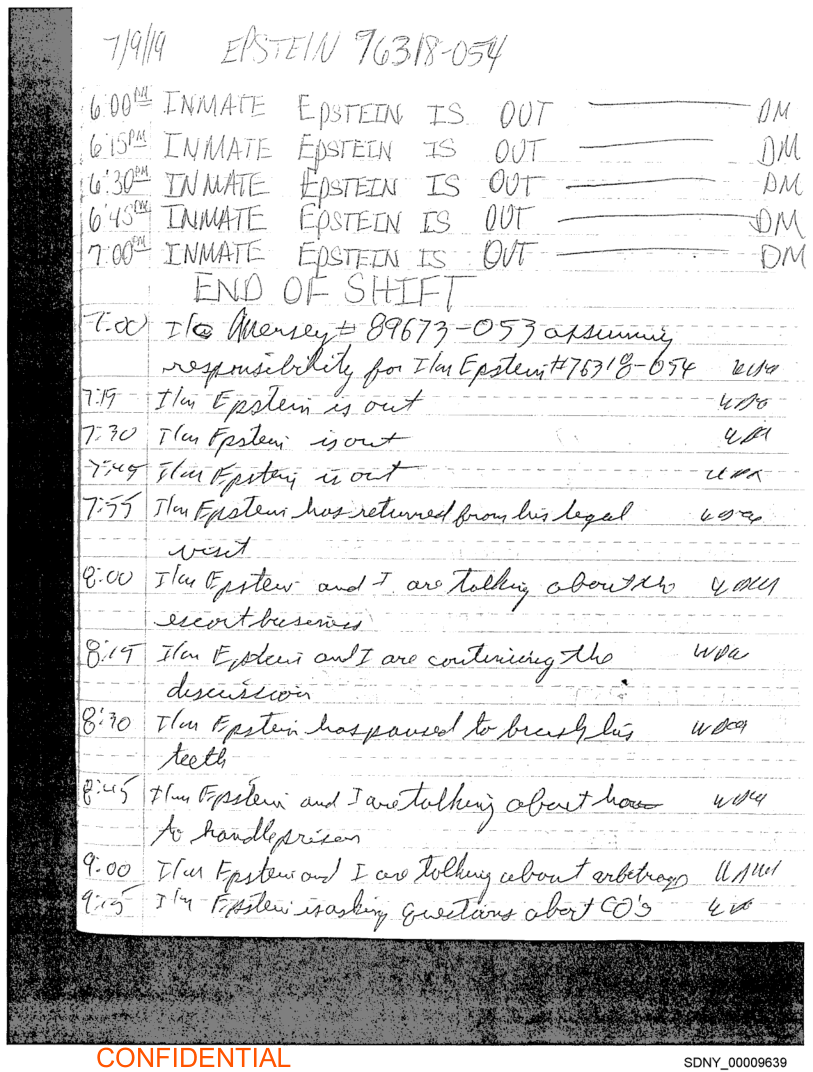 7/9/19 EPSTEIN 76318-054
6:00PM INMATE EPSTEIN IS OUT DM
6:15PM INMATE EPSTEIN IS OUT DM
6:30PM INMATE EPSTEIN IS OUT DM
6:45PM INMATE EPSTEIN IS OUT DM
7:00PM INMATE EPSTEIN IS OUT DM
END OF SHIFT
7:00 I/C # 89673-053 assuming
responsibility for I/m Epstein #76318-054
7:15 I/m Epstein is out
7:30 I/m Epstein is out
7:45 I/m Epstein is out
7:55 I/m Epstein has returned from his legal
visit
8:00 I/m Epstein and I are talking about the
escort business
8:15 I/m Epstein and I are continuing the
discussion
8:30 I/m Epstein has paused to brush his
teeth
8:45 I/m Epstein and I are talking about how
to handle prison
9:00 I/m Epstein and I are talking about arbetrage
9:15 I/m Epstein is asking questions about CO's
CONFIDENTIAL
SDNY_00009639